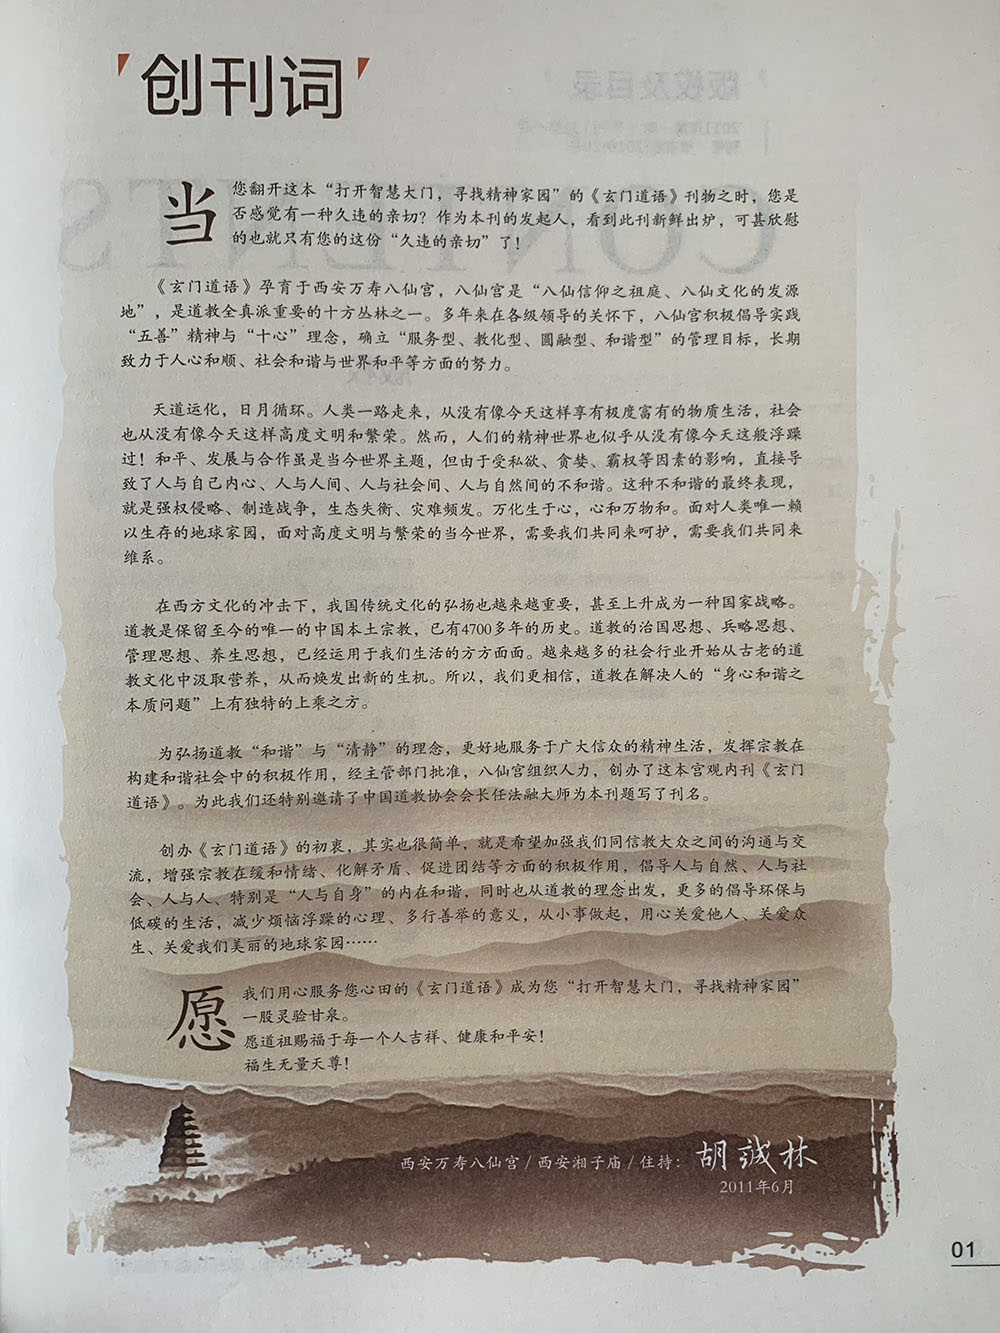 创刊词
当您翻开这本“打开智慧大门，寻找精神家园”的《玄门道语》刊物之时，您是
否感觉有一种久违的亲切？作为本刊的发起人，看到此刊新鲜出炉，可甚欣慰
的也就只有您的这份“久违的亲切”了！
《玄门道语》孕育于西安万寿八仙宫，八仙宫是“八仙信仰之祖庭、八仙文化的发源
地”，是道教全真派重要的十方丛林之一。多年来在各级领导的关怀下，八仙宫积极倡导实践
“五善”精神与“十心”理念，确立“服务型、教化型、圆融型、和谐型”的管理目标，长期
致力于人心和顺、社会和谐与世界和平等方面的努力。
天道运化，日月循环。人类一路走来，从没有像今天这样享有极度富有的物质生活，社会
也从没有像今天这样高度文明和繁荣。然而，人们的精神世界也似乎从没有像今天这般浮躁
过！和平、发展与合作虽是当今世界主题，但由于受私欲、贪婪、霸权等因素的影响，直接导
致了人与自己内心、人与人间、人与社会间、人与自然间的不和谐。这种不和谐的最终表现，
就是强权侵略、制造战争，生态失衡、灾难频发。万化生于心，心和万物和。面对人类唯一赖
以生存的地球家园，面对高度文明与繁荣的当今世界，需要我们共同来呵护，需要我们共同来
维系。
在西方文化的冲击下，我国传统文化的弘扬也越来越重要，甚至上升成为一种国家战略。
道教是保留至今的唯一的中国本土宗教，已有4700多年的历史。道教的治国思想、兵略思想、
管理思想、养生思想，已经运用于我们生活的方方面面。越来越多的社会行业开始从古老的道
教文化中汲取营养，从而焕发出新的生机。所以，我们更相信，道教在解决人的“身心和谐之
本质问题”上有独特的上乘之方。
为弘扬道教“和谐”与“清静”的理念，更好地服务于广大信众的精神生活，发挥宗教在
构建和谐社会中的积极作用，经主管部门批准，八仙宫组织人力，创办了这本宫观内刊《玄门
道语》。为此我们还特别邀请了中国道教协会会长任法融大师为本刊题写了刊名。
创办《玄门道语》的初衷，其实也很简单，就是希望加强我们同信教大众之间的沟通与交
流，增强宗教在缓和情绪、化解矛盾、促进团结等方面的积极作用，倡导人与自然、人与社
会、人与人、特别是“人与自身”的内在和谐，同时也从道教的理念出发，更多的倡导环保与
低碳的生活，减少烦恼浮躁的心理、多行善举的意义，从小事做起，用心关爱他人、关爱众
生、关爱我们美丽的地球家园……
愿我们用心服务您心田的《玄门道语》成为您“打开智慧大门，寻找精神家园”
一股灵验甘泉。
愿道祖赐福于每一个人吉祥、健康和平安！
福生无量天尊！
西安万寿八仙宫/西安湘子庙/住持：胡誠林
2011年6月
01